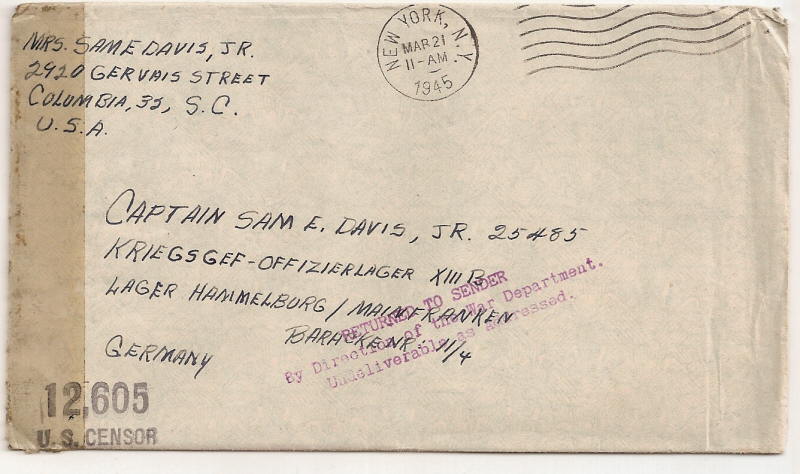 MRS. SAM E DAVIS, JR.
2920 GERVAIS STREET
COLUMBIA, 32, S.C.
U.S.A.
NEW YORK, N.Y.
MAR 21
11-AM
1945
CAPTAIN SAM E. DAVIS, JR. 25485
KRIEGSGEF-OFFIZIERLAGER XIII B
LAGER HAMMELBURG/MAINFRANKEN
BARACKE NR. 11/4
GERMANY
RETURNED TO SENDER
By Direction of the War Department.
Undeliverable as addressed.
12,605
U.S. CENSOR